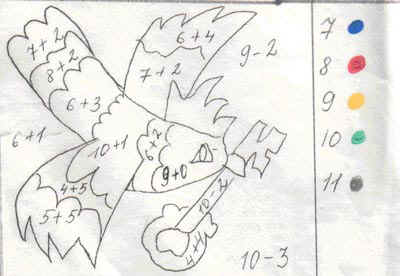 7+2
8+2
6+3
6+4
7+2
9-2
6+1
10+1
9+0
4+5
5+5
10-2
4+4
10-3
7
8
9
10
11